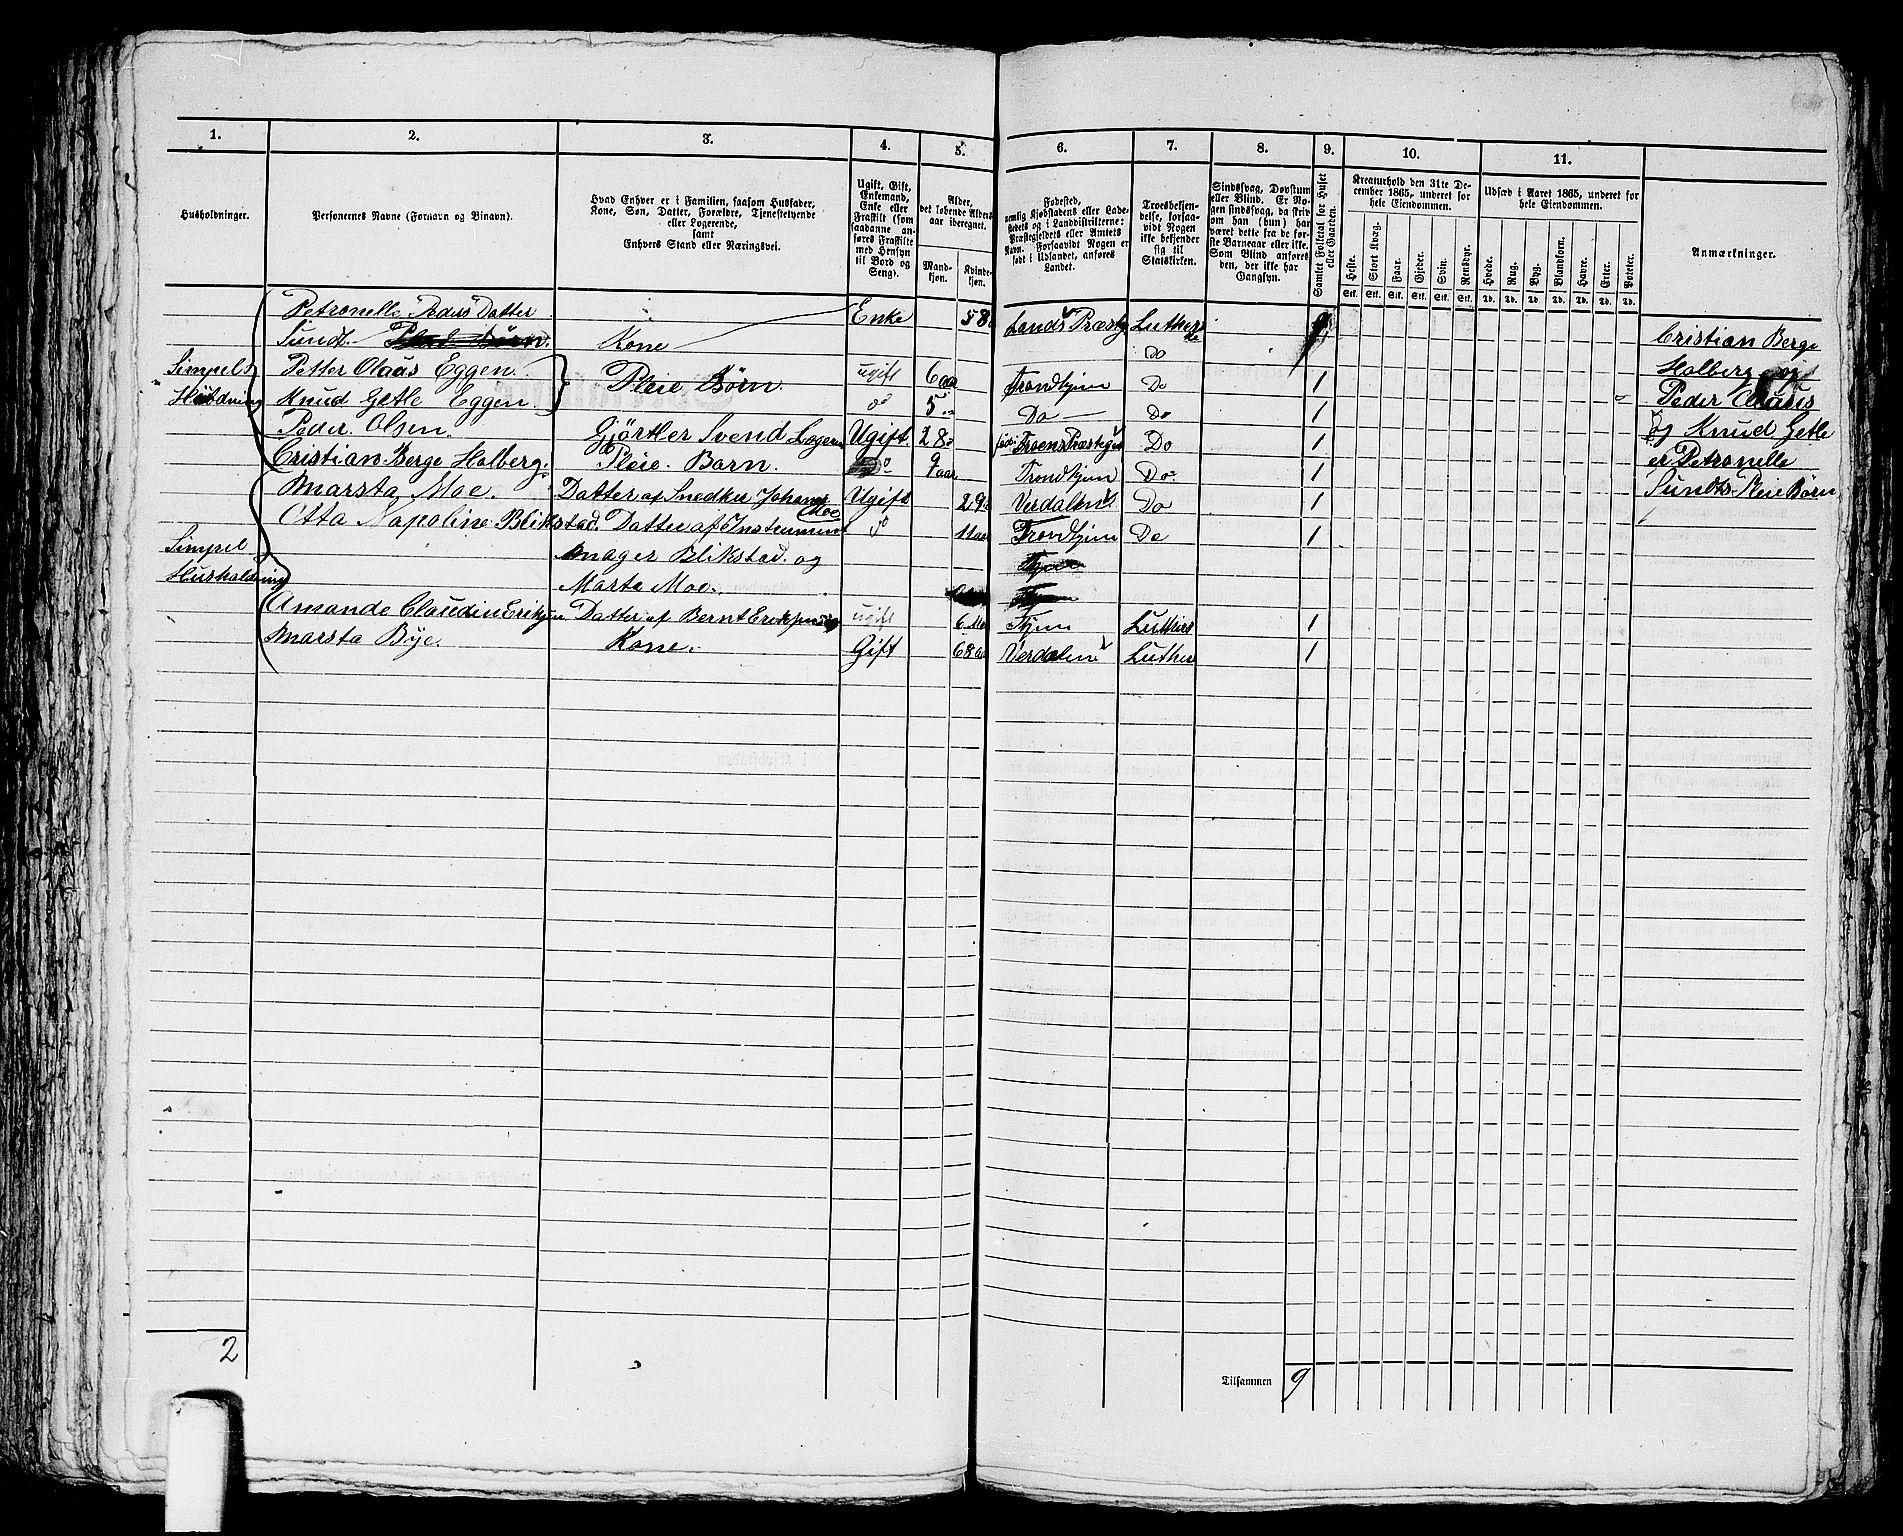 1. 2. 3. 4. 5. 6. 7. 8. 9. 10. 11.
Husholdninger.
Personernes Navne (Fornavn og Binavn).
Hvad Enhver er i Familien, saasom Husfader,
Kone, Søn, Datter, Forældre, Tjenestetyende
eller Logerende,
samt
Enhvers Stand eller Næringsvei.
Ugift, Gift,
Enkemand,
Enke eller
Fraskilt (som
saadanne an-
føres Fraskilte
med Hensyn
til Bord og
Seng).
Alder,
det løbende Alders-
aar iberegnet.
Mand-
kjøn.
Kvinde-
kjøn.
Fødested,
nemlig Kjøbstadens eller Lade-
stedets og i Landdistrikterne:
Præstegjeldets eller Amtets
Navn. Forsaavidt Nogen er
født i Udlandet, anføres
Landet.
Troesbekjen-
delse, forsaa-
vidt Nogen
ikke bekjender
sig til
Statskirken.
Sindssvag, Døvstum
eller Blind. Er No-
gen sindssvag, da skriv
om han (hun) har
været dette fra de før-
ste Barneaar eller ikke.
Som Blind anføres
den, der ikke har
Gangsyn.
Samlet Folketal for Huset
eller Gaarden.
Kreaturhold den 31te De-
cember 1865, underet for
hele Eiendommen.
Heste. Stort Kvæg. Faar. Gjeder. Svin. Rensdyr.
Stk. Stk. Stk. Stk. Stk. Stk.
Udsæd i Aaret 1865, underet for
hele Eiendommen.
Hvede. Rug. Byg. Blandkorn. Havre. Erter. Poteter.
Td. Td. Td. Td. Td. Td. Td.
Anmærkninger.
Petronelle Peders Datter Enke 58 Lands Præstg Luthers
Sund. Kone Do Cristian Berge
Simpel Petter Olaus Eggen. Pleie Børn. ugift 6 aar Trondhjem Do 1 Holberg og
Knud Getle Eggen do 5 Do Do 1 Peder Olaus
Peder. Olsen. Gjörtler Svend Logeren Ugift. 28 Præstegjel Do 1 og Knud Getle
Cristian Berge Holberg. Pleie. Barn. do 9 aar Trondhjem Do 1 er Petronelle
Marsta Moe. Datter af Snedker Johanes Moe Ugift 29 Verdalen Do 1 Sundts Pleie Børn
Otta Napoline Blikstad. Datter af Instrument do 11 aar Trondhjem Do 1
Simpel mager Blikstad. og
Husholdning Marta Moe.
Amande Claudin Eriksen Datter af Bernt Eriksen ugift 6 Tjem Luthers 1
Marsta Bye. Kone. Gift 68 aar Verdalen Luther 1
2
Tilsammen 9